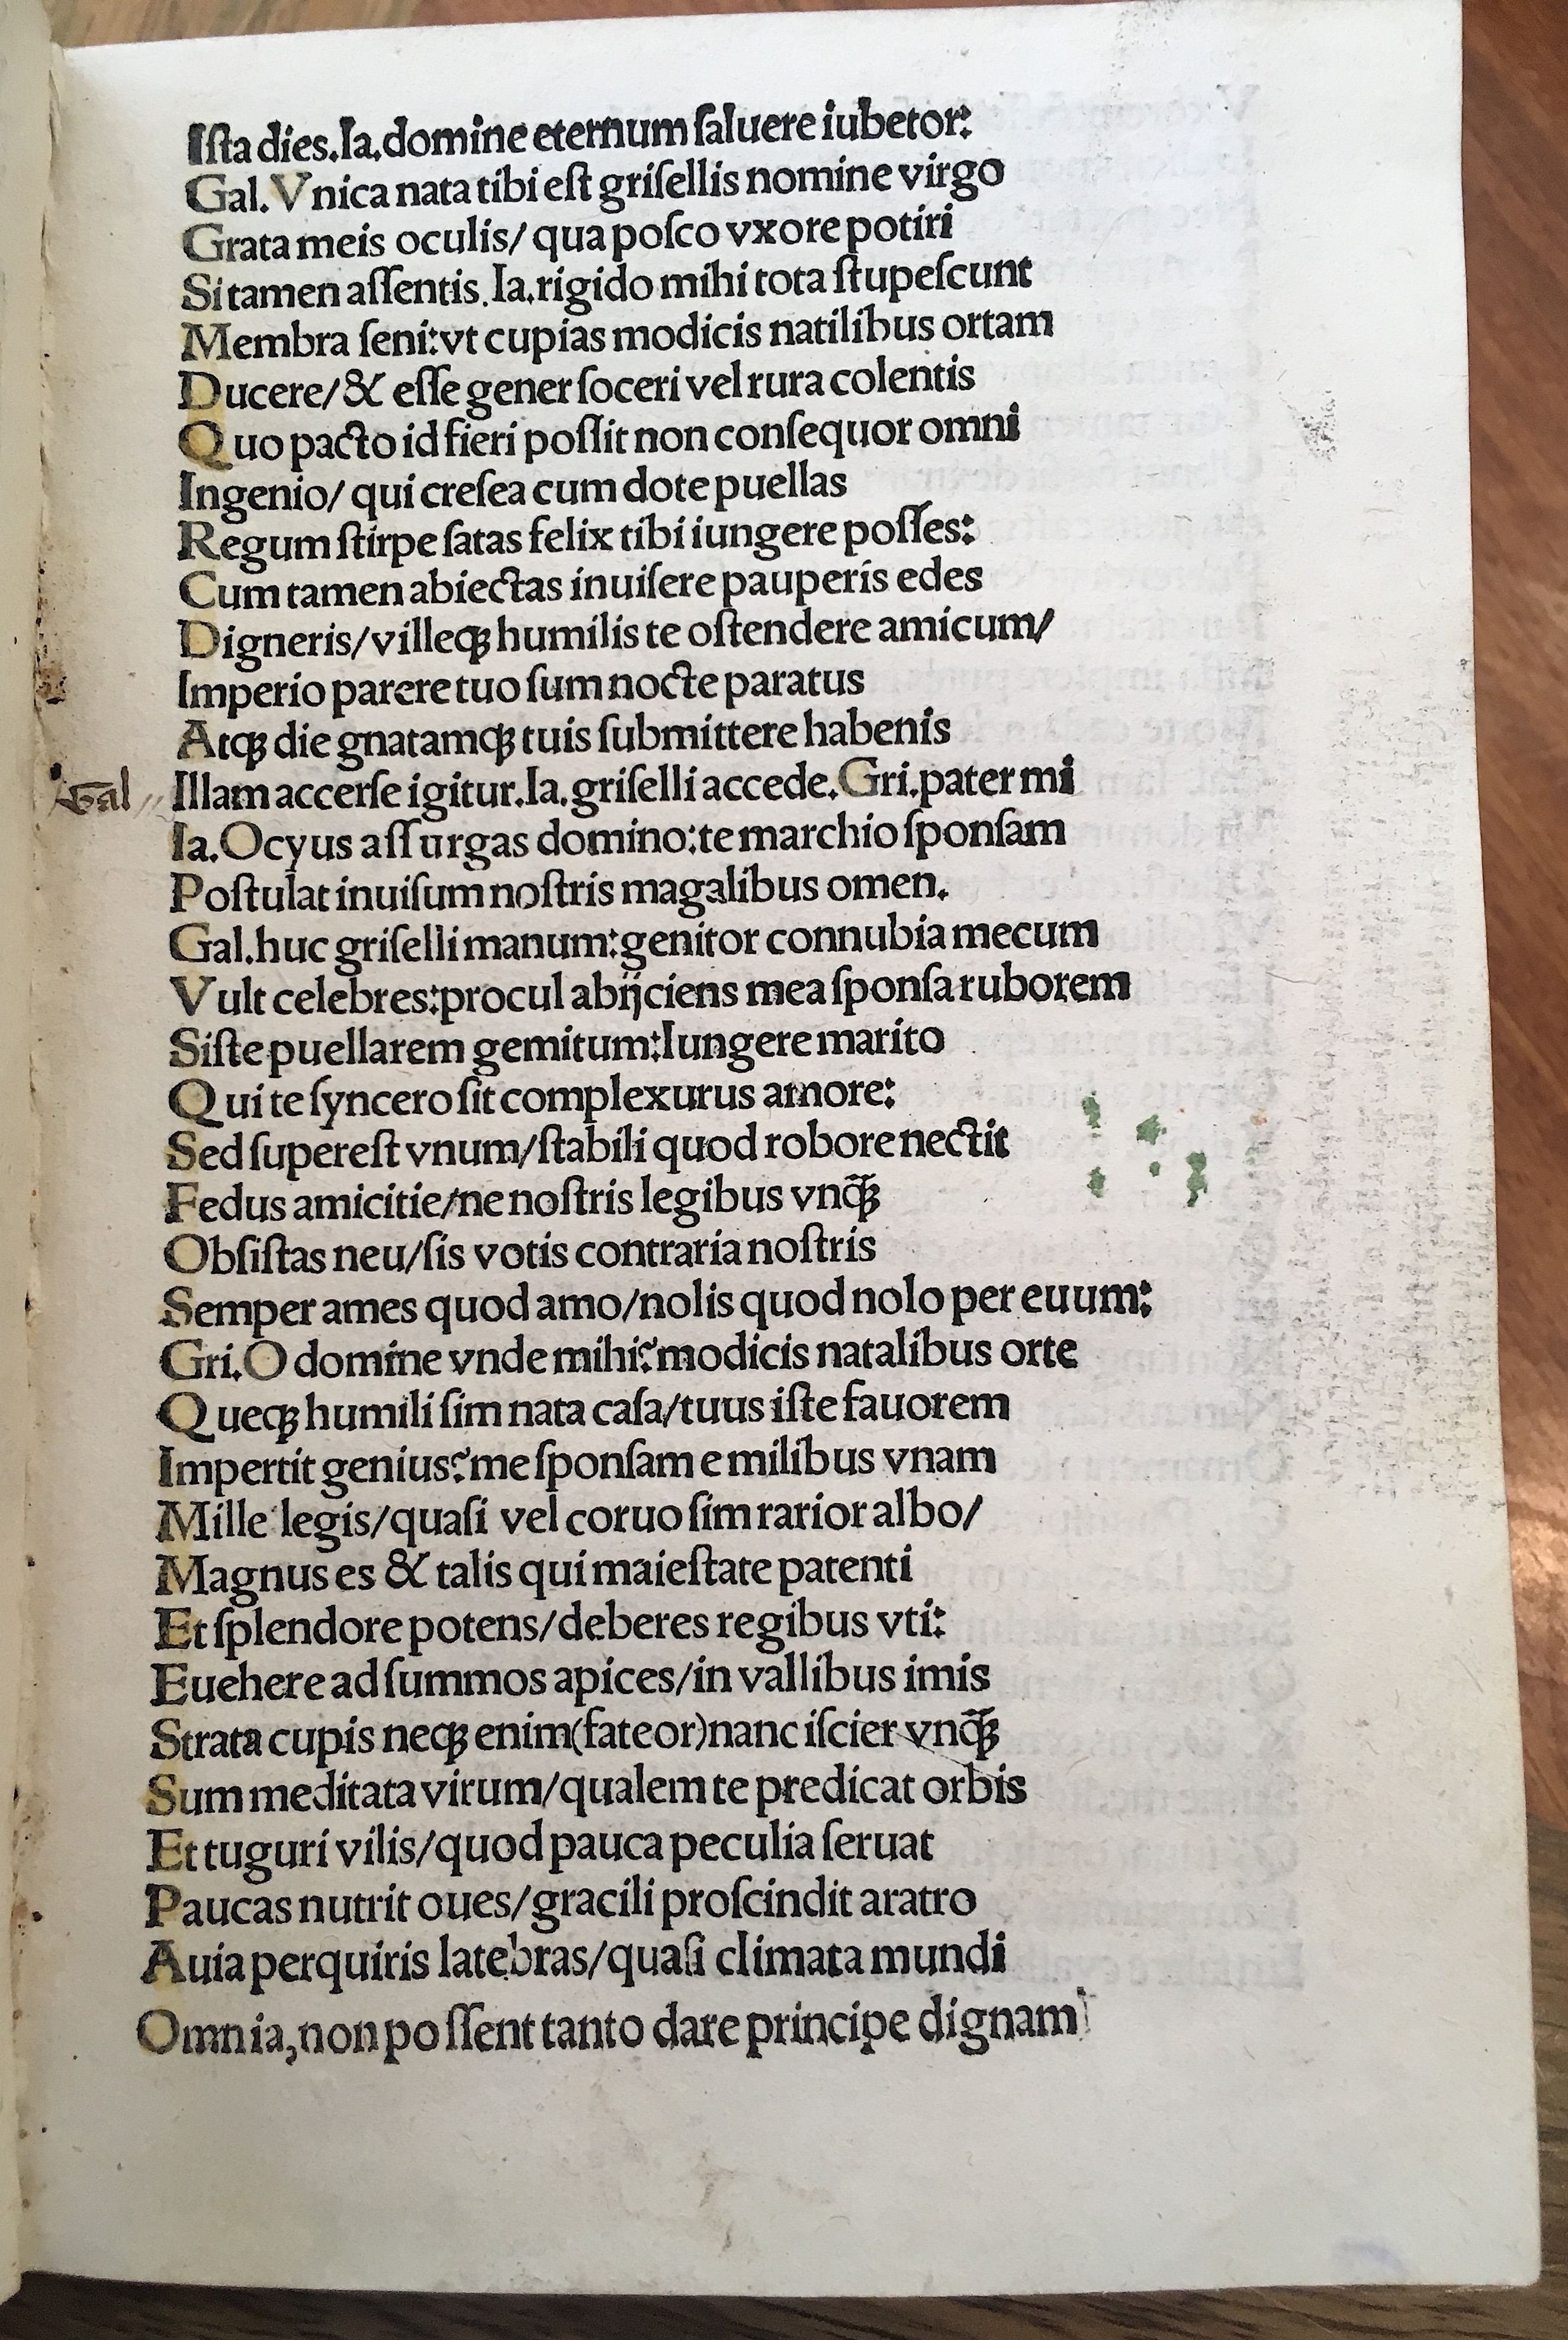 Iſta dies.Ia.domine eternum ſaluere iubetor:
Gal. Vnica nata tibi eſt griſellis nomine virgo
Grata meis oculis/ qua poſco vxore potiri
Si tamen aſſentis. Ia.rigido mihi tota ſtupeſcunt
Membra ſeni:vt cupias modicis natilibus ortam
Ducere/& eſſe gener ſoceri vel rura colentis
Quo pacto id fieri poſſit non conſequor omni
Ingenio/ qui creſea cum dote puellas
Regum ſtirpe ſatas felix tibi iungere poſſes:
Cum tamen abiectas inuiſere pauperis edes
Digneris/villeqꝫ humilis te oſtendere amicum/
Imperio parere tuo ſum nocte paratus
Atqꝫ die gnatamqꝫ tuis ſubmittere habenis
Gal Illam accerſe igitur.Ia.griſelli accede.Gri.pater mi
Ia.Ocyus aſſurgas domino:te marchio ſponſam
Poſtulat inuiſum noſtris magalibus omen.
Gal.huc griſelli manum:genitor connubia mecum
Vult celebres:procul abijciens mea ſponſa ruborem
Siſte puellarem gemitum:Iungere marito
Qui te ſyncero ſit complexurus amore:
Sed ſupereſt vnum/ſtabili quod robore nectit
Fedus amicitie/ne noſtris legibus vnq̄ꝫ
Obſiſtas neu/ſis votis contraria noſtris
Semper ames quod amo/nolis quod nolo per euum:
Gri.O domine vnde mihi?modicis natalibus orte
Queqꝫ humili ſim nata caſa/tuus iſte fauorem
Impertit genius?me ſponſam e milibus vnam
Mille legis/quaſi vel coruo ſim rarior albo/
Magnus es & talis qui maieſtate patenti
Et ſplendore potens/deberes regibus vti:
Euehere ad ſummos apices/in vallibus imis
Strata cupis neqꝫ enim(fateor)nanciſcier vnq̄ꝫ
Sum meditata virum/qualem te predicat orbis
Et tuguri vilis/quod pauca peculia ſeruat
Paucas nutrit oues/gracili proſcindit aratro
Auia perquiris latebras/quaſi climata mundi
Omnia,non poſſent tanto dare principe dignam